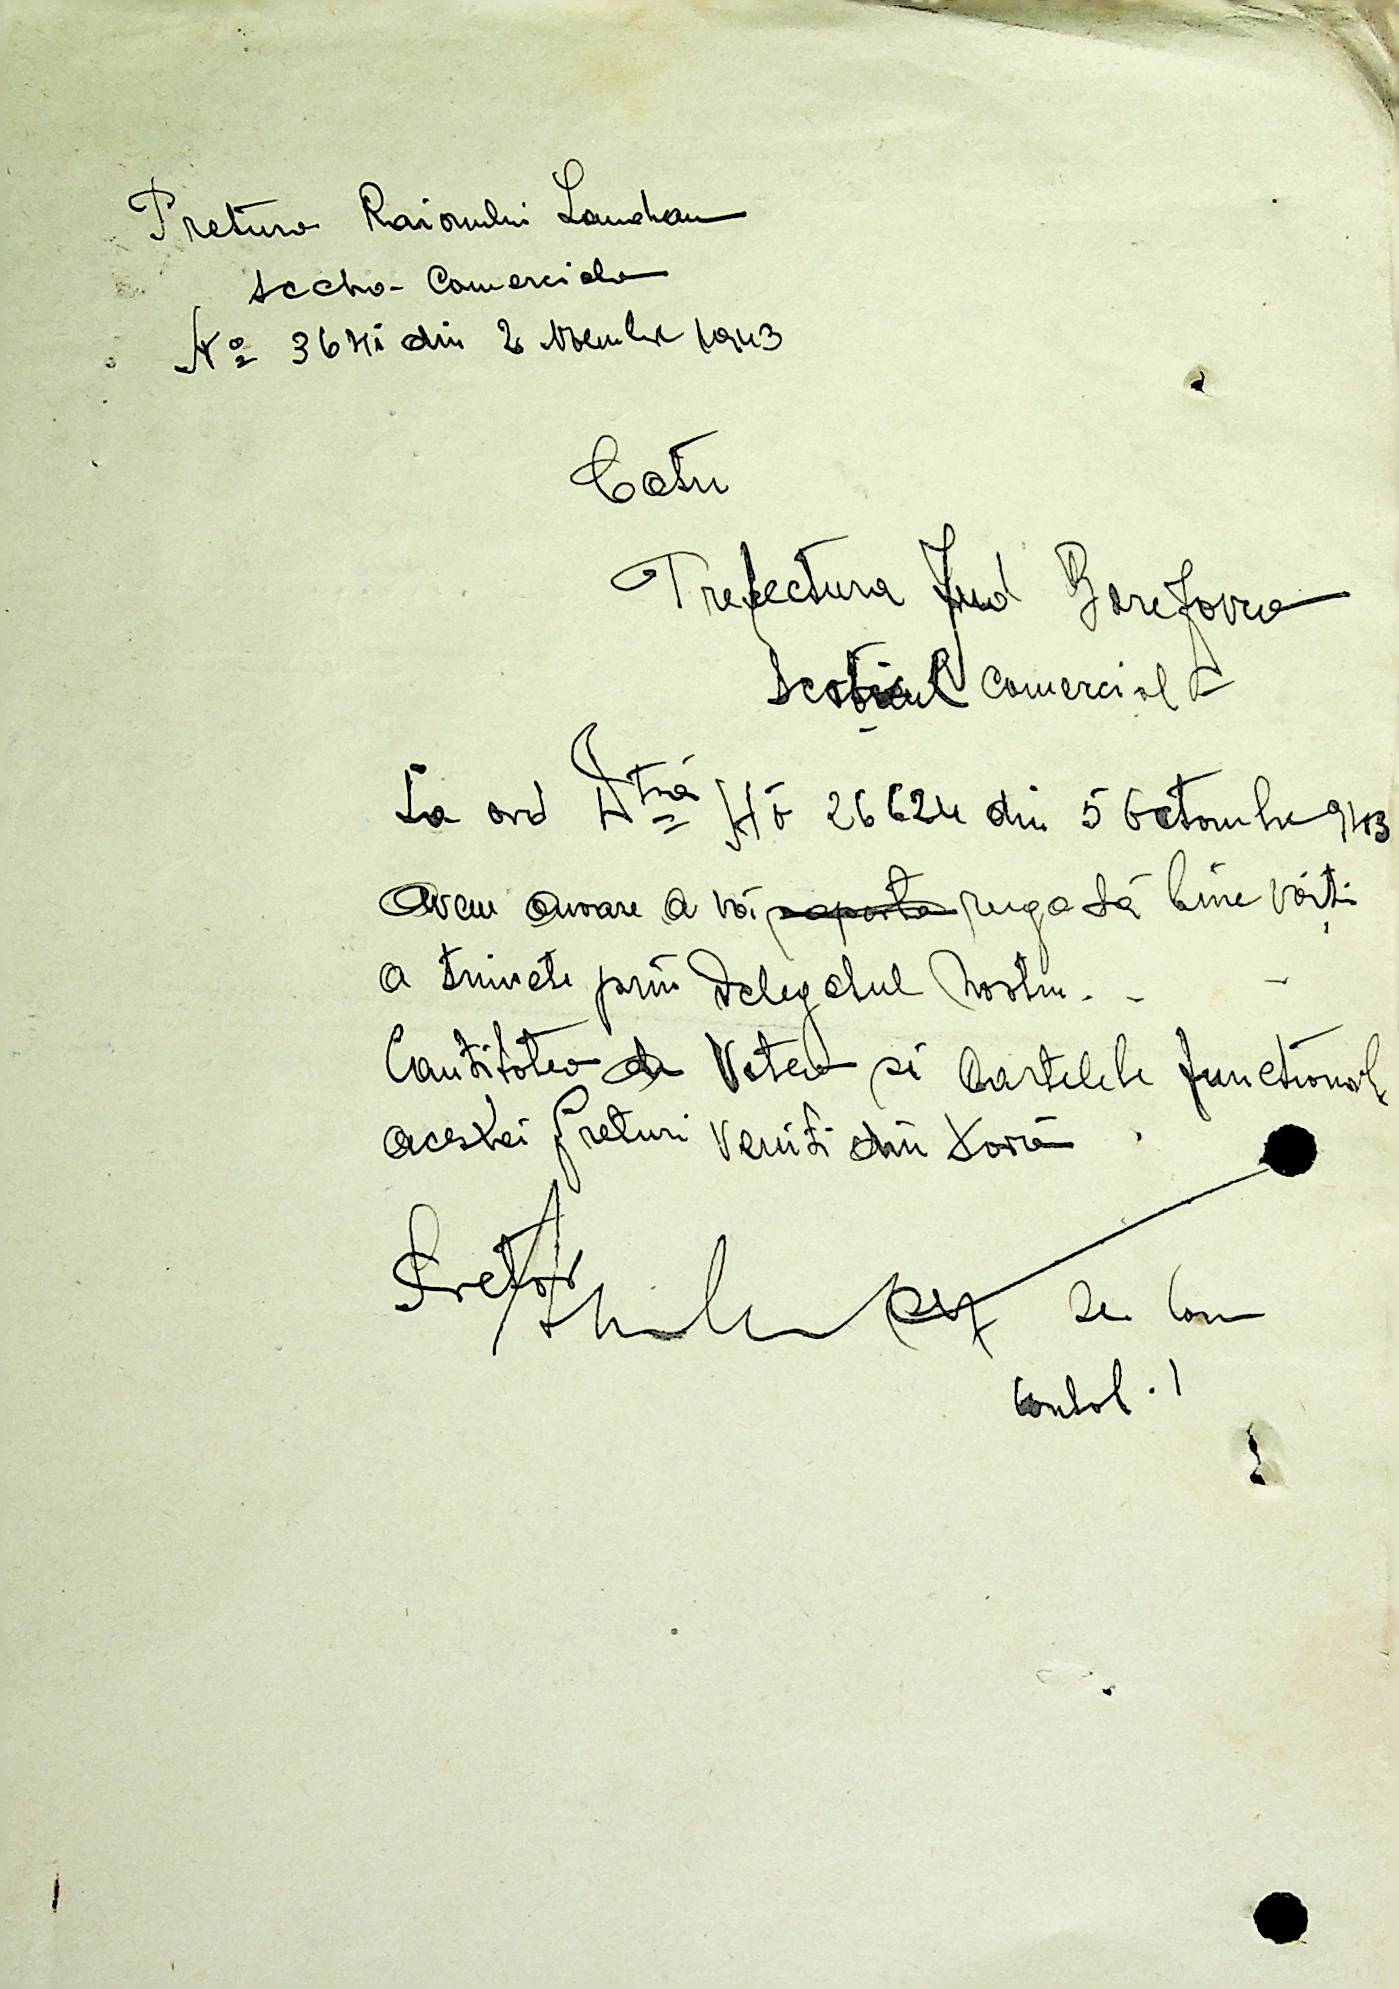 Pretura Raionului Landau
Secția Comercială
Nº din 2 Noembrie 1943
Catre
Prefectura Jud Berezovca
Comercial
La ord Dtră Nº 26624 din 5 Octombrie 943
Avem onoare a vă raporta ruga să bine voiți
a trimete prin Delegatul Nostru. -
Cantitatea de și Cartelele funcționarilor
acestei Preturi Veniți din țară
Pretor
Control. I